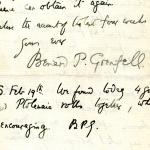 can obtain it again
the account of the last four weeks
Yours ever
Bernard P. Grenfell
Feb 19th. We found today 4 good
Ptolemaic rolls together, wh
encouraging B.P.G.